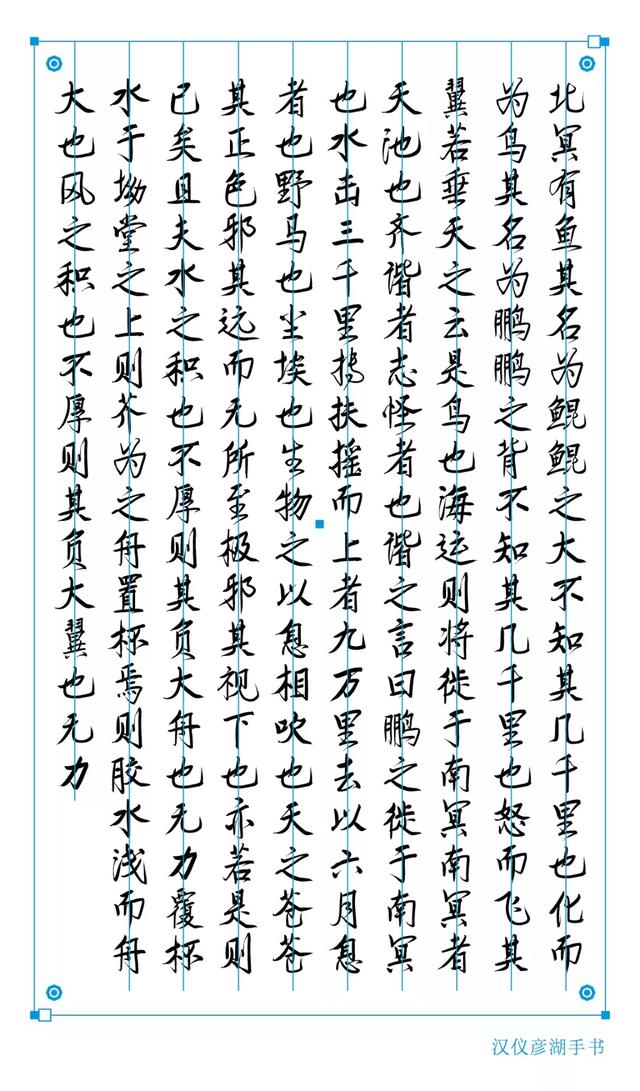 北冥有鱼其名为鲲鲲之大不知其几千里也化而
为鸟其名为鹏鹏之背不知其几千里也怒而飞其
翼若垂天之云是鸟也海运则将徙于南冥南冥者
天池也齐谐者志怪者也谐之言曰鹏之徙于南冥
也水击三千里抟扶摇而上者九万里去以六月息
者也野马也尘埃也生物之以息相吹也天之苍苍
其正色邪其远而无所至极邪其视下也亦若是则
已矣且夫水之积也不厚则其负大舟也无力覆杯
水于坳堂之上则芥为之舟置杯焉则胶水浅而舟
大也风之积也不厚则其负大翼也无力
汉仪彦湖手书